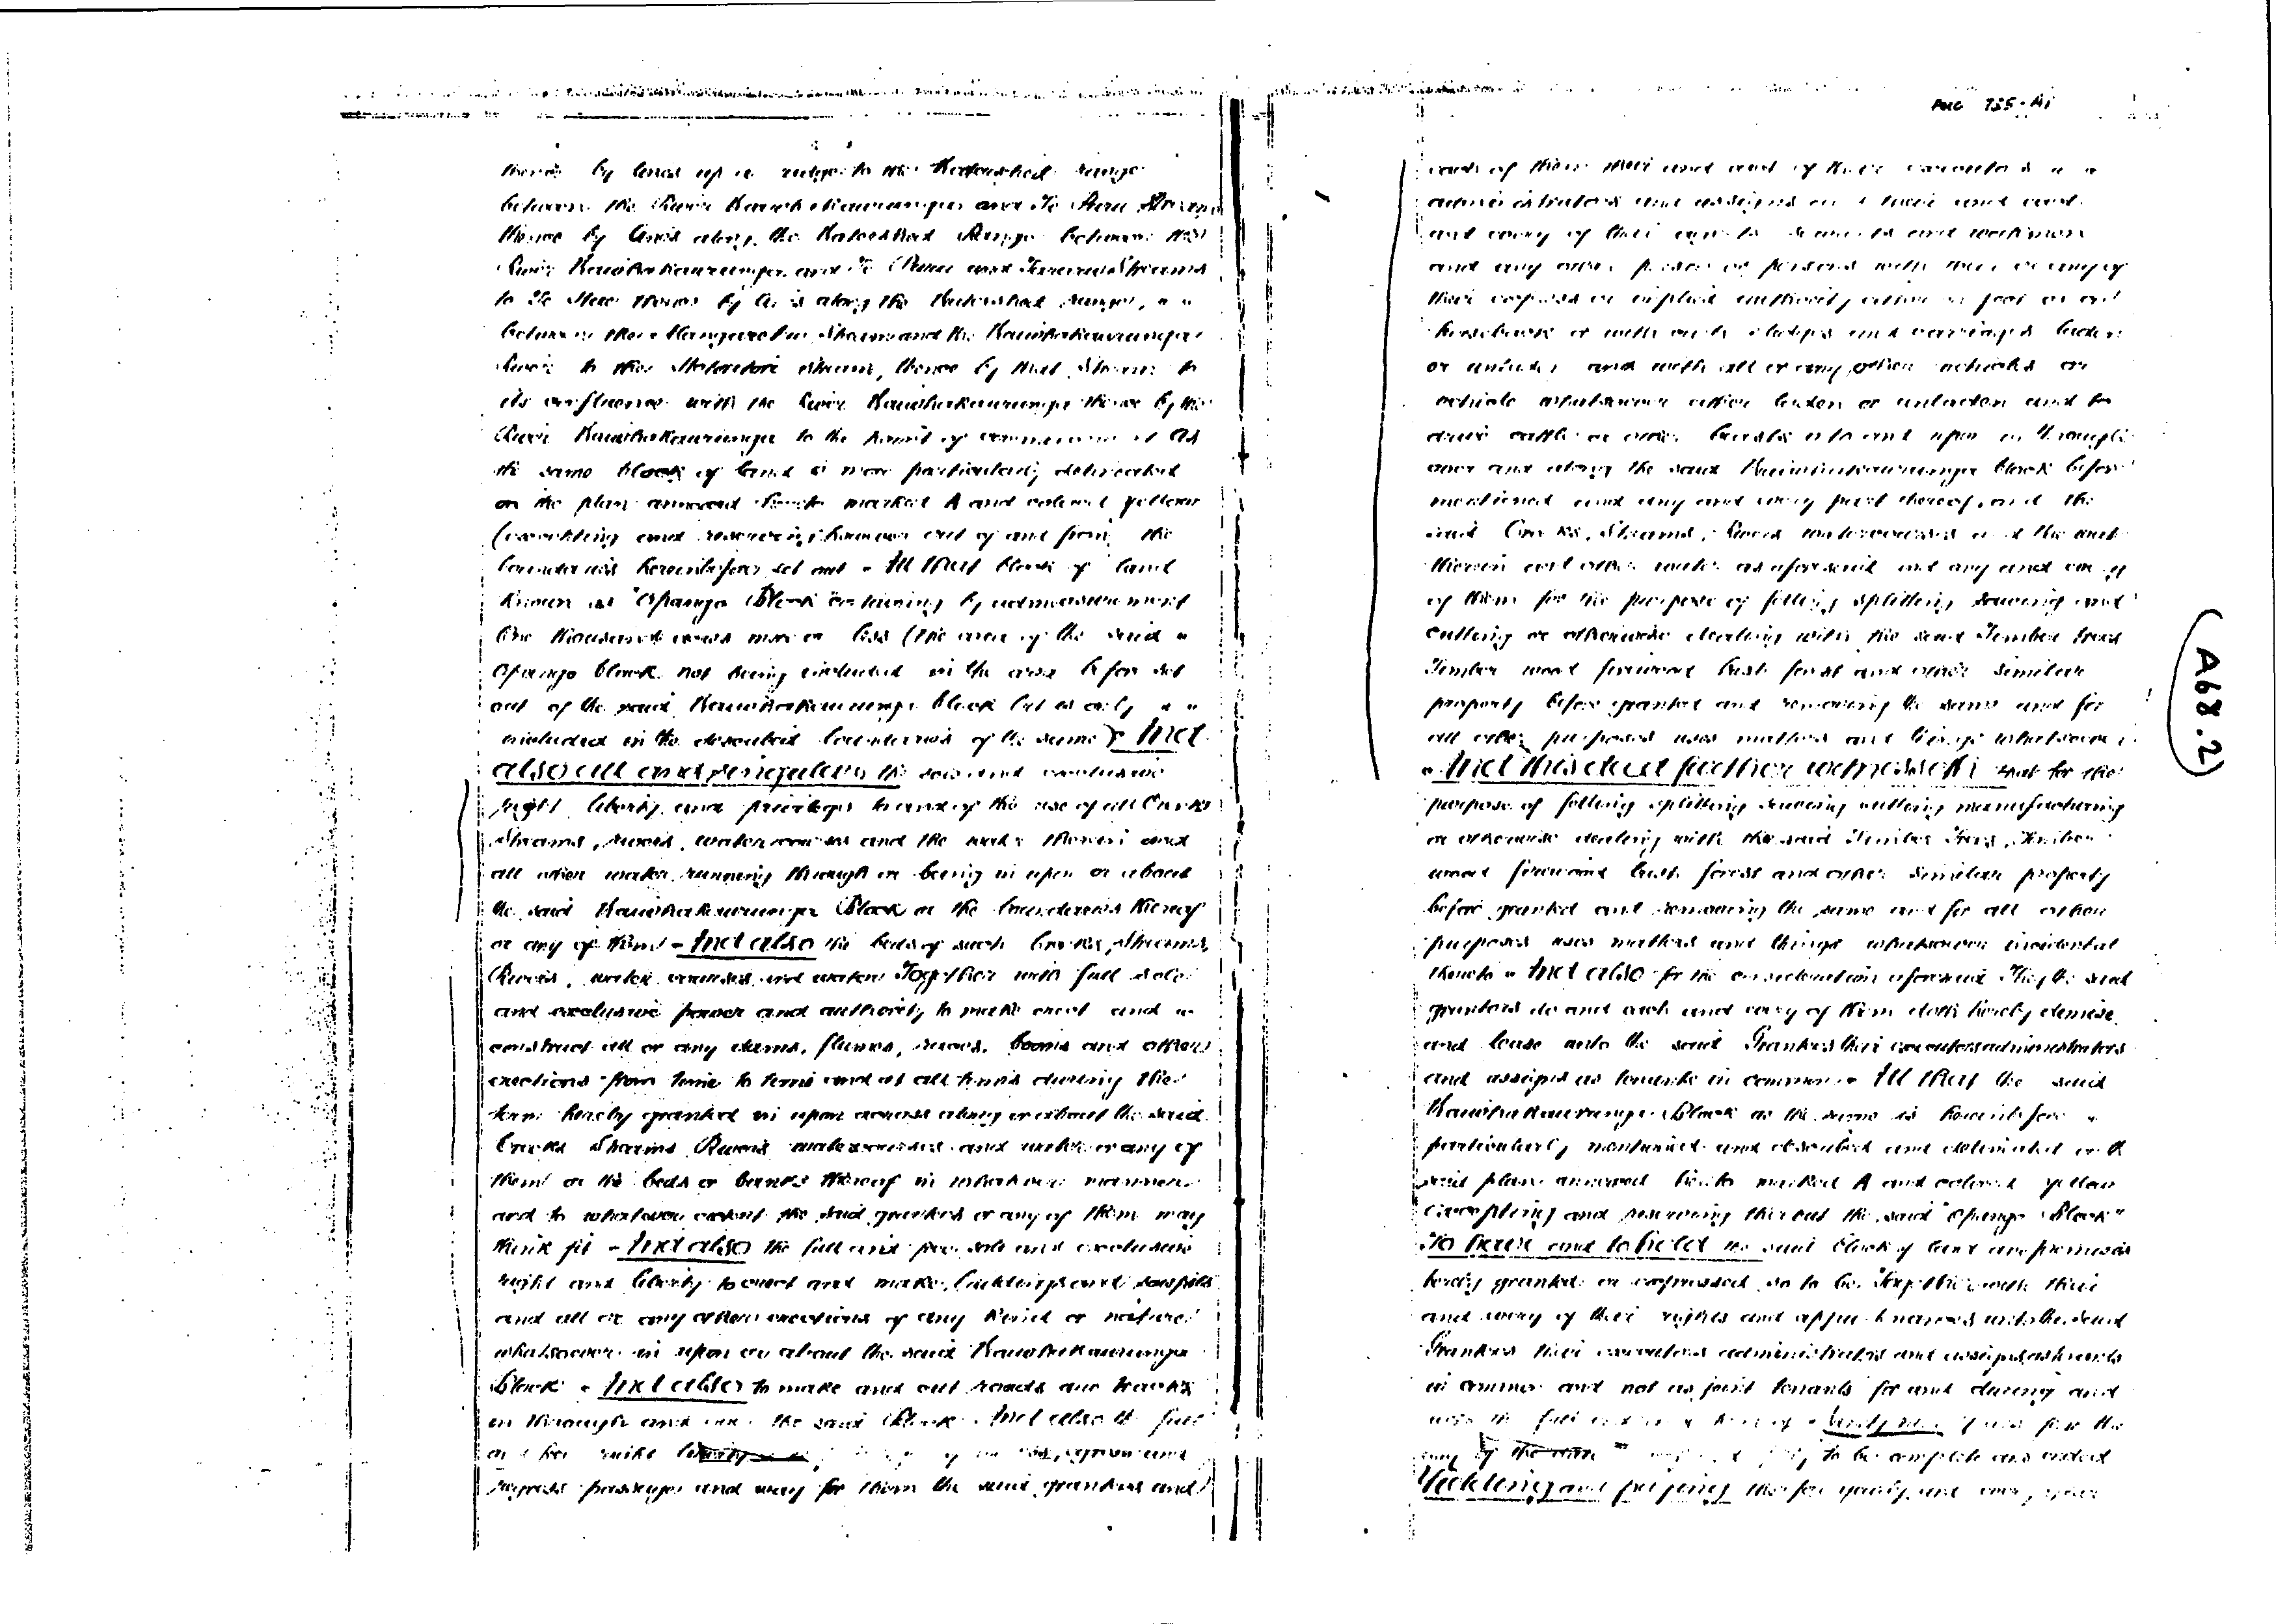 thence by lines up a ridge to the Watershed range
between the River Kauwhakaurunga and Te
thence by lines along the Watershed Range between the
River Kauwhakaurunga and Te and Streams
to Te thence by lines along the Watershed range,
between the Stream and the Kauwhakaurunga
River to the Stream, thence by that Stream to
its confluence with the River Kauwhakaurunga thence by the
River Kauwhakaurunga to the point of commencement As
the same block of land is more particularly delineated
on the plan annexed hereto marked A and colored yellow
(excepting and reserving however out of and from the
boundaries hereinbefore set out - All that block of land
known as "Opango Block" containing by admeasurement
One thousand acres more or less (the area of the said
Opango block not being included in the area before set
out of the said Kauwhakaurunga block but is only
included in the described boundaries of the same) And
also all and singular the sole and exclusive
right liberty and privilege to and of the use of all Creeks
Streams, rivers, watercourses and the water therein and
all other water running through or being in upon or about
the said Kauwhakaurunga Block or the boundaries thereof
or any of them - And also the beds of such Creeks, Streams,
Rivers, water courses and water Together with full sole
and exclusive power and authority to make erect and
construct all or any dams, flumes, races, booms and other
erections from time to time and at all times during the
term hereby granted in upon across along or about the said
Creeks Streams Rivers watercourses and water or any of
them or the beds or banks thereof in whatever manner
and to whatever extent the said grantees or any of them may
think fit - And also the full and free sole and exclusive
right and liberty to erect and make buildings and sawpits
and all or any other erections of any kind or nature
whatsoever in upon or about the said Kauwhakaurunga
Block - And also to make and cut roads and tracks
in through and over the said Block - And also the full
and free egress and
regress passage and way for them the said grantees and
each of them their and each of their executors
administrators and assigns and their and each
and every of their agents servants and workmen
and any other person or persons with their or any of
their express or implied authority either on foot or on
horseback or with carts sledges and carriages laden
or unladen and with all or any other vehicles or
vehicle whatsoever either laden or unladen and to
drive cattle or other beasts into and upon in through
over and along the said Kauwhakaurunga block before
mentioned and any and every part thereof, and the
said Creeks, Streams, Rivers watercourses and the water
therein and other water as aforesaid and any and every
of them for the purpose of felling splitting sawing and
cutting or otherwise dealing with the said Timber trees
Timber wood firewood bush forest and other similar
property before granted and removing the same and for
all other purposes uses matters and things whatsoever
- And this deed further witnesseth that for the
purpose of felling splitting sawing cutting manufacturing
or otherwise dealing with the said Timber Trees, Timber
wood firewood bush forest and other similar property
before granted and removing the same and for all other
purposes uses matters and things whatsoever incidental
thereto - And also for the consideration aforesaid They the said
grantors do and each and every of them doth hereby demise
and lease unto the said Grantees their executors administrators
and assigns as tenants in common - All that the said
Kauwhakaurunga Block as the same is hereinbefore
particularly mentioned and described and delineated in the
said plan annexed hereto marked A and colored yellow
excepting and reserving thereout the said "Opango Block"
To have and to hold the said block of land and premises
hereby granted or expressed so to be Together with their
and every of their rights and appurtenances unto the said
Grantees their executors administrators and assigns as tenants
in common and not as joint tenants for and during and
unto the full term of from the
to be complete and ended
Yielding and paying therefor yearly and every year
A68.2